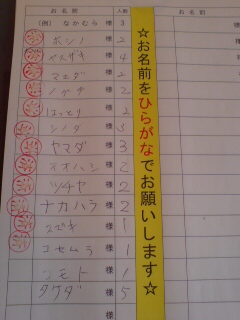 お名前 人数 お名前
(例) なかむら 様 3
ホシノ 様 2
ヤスザキ 様 4
マエダ 様 2
様 2
はっとり 様 2
シノダ 様 3
ヤマダ 様 3
様 2
ツチヤ 様 2
ナカハラ 様 2
スズキ 様 1
様 1
様 1
タケダ 様 5
☆お名前をひらがなでお願いします☆